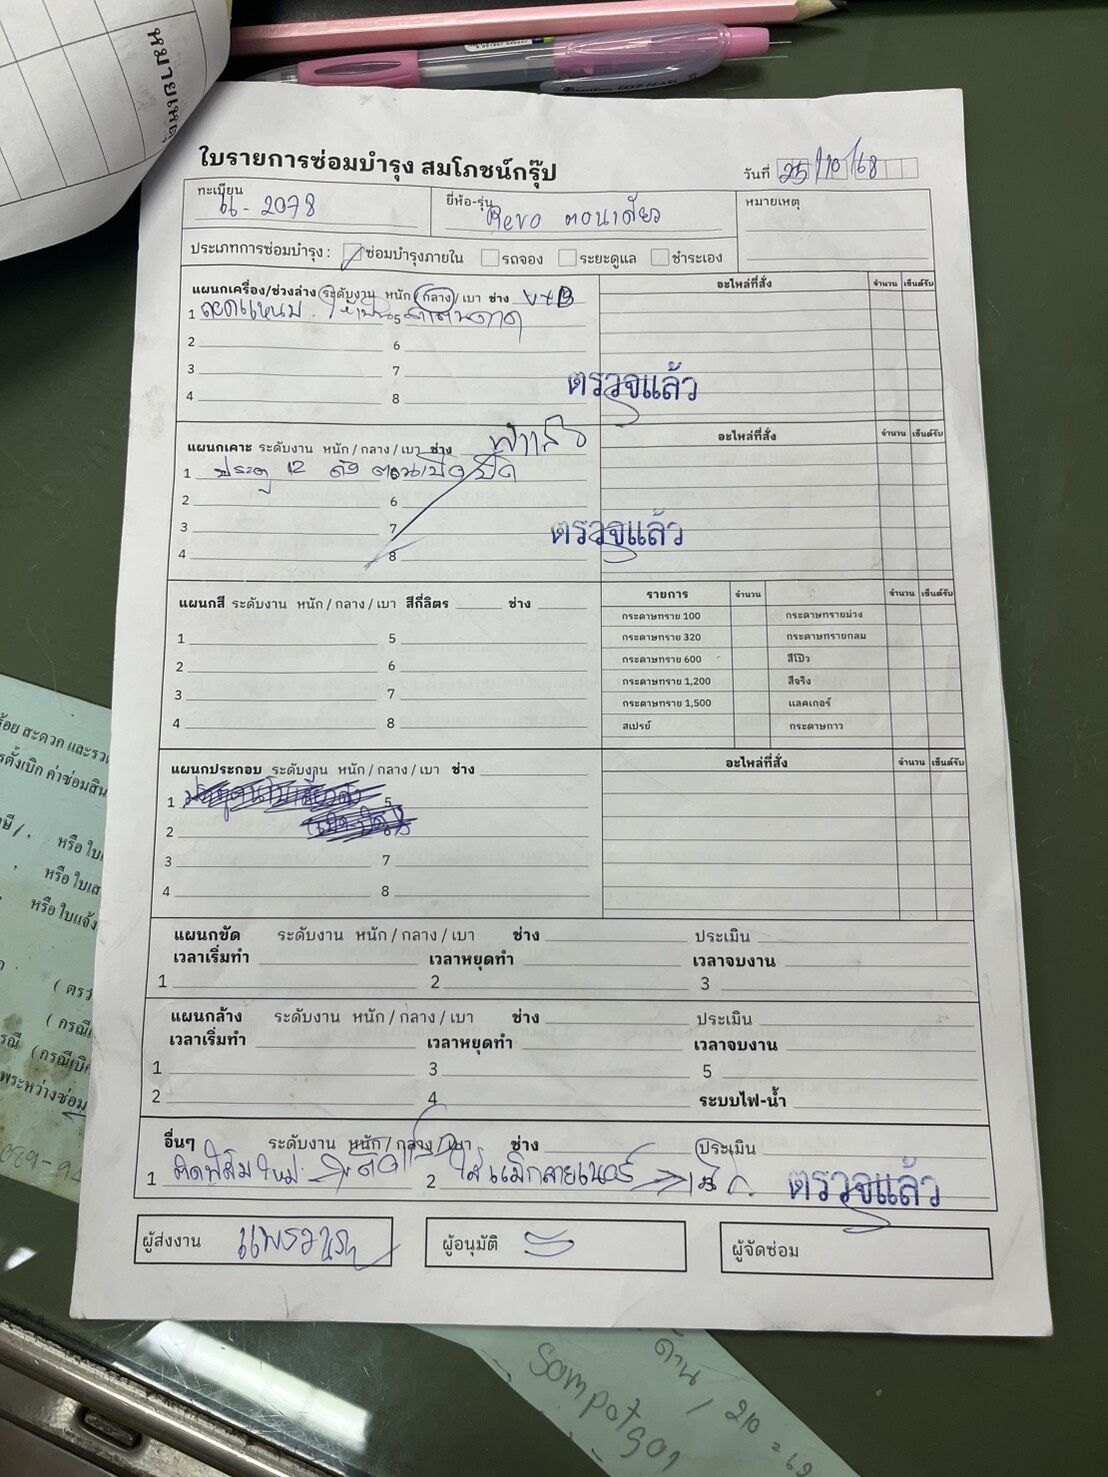 หมายเหตุ
ใบรายการซ่อมบำรุง สมโภชน์กรุ๊ป
วันที่ 25/10/68
ทะเบียน
2078
ยี่ห้อ-รุ่น
Revo ตอนเดียว
หมายเหตุ
ประเภทการซ่อมบำรุง : ซ่อมบำรุงภายใน รถจอง ระยะดูแล ชำระเอง
แผนกเครื่อง/ช่วงล่าง ระดับงาน หนัก /กลาง/ เบา ช่าง
อะไหล่ที่สั่ง จำนวน เซ็นต์รับ
1 ลดแหนบ 5
2 6
3 7
4 8
ตรวจแล้ว
แผนกเคาะ ระดับงาน หนัก / กลาง / เบา ช่าง
อะไหล่ที่สั่ง จำนวน เซ็นต์รับ
1 ประตู ดัง ตอนเปิด ปิด
2 6
3 7
4 8
ตรวจแล้ว
แผนกสี ระดับงาน หนัก / กลาง / เบา สีกี่ลิตร ช่าง
รายการ จำนวน จำนวน เซ็นต์รับ
1 5
2 6
3 7
4 8
กระดาษทราย 100 กระดาษทรายม่วง
กระดาษทราย 320 กระดาษทรายกลม
กระดาษทราย 600 สีโป๊ว
กระดาษทราย 1,200 สีจริง
กระดาษทราย 1,500 แลคเกอร์
สเปรย์ กระดาษกาว
แผนกประกอบ ระดับงาน หนัก / กลาง / เบา ช่าง
อะไหล่ที่สั่ง จำนวน เซ็นต์รับ
1 5
2 6
3 7
4 8
แผนกขัด ระดับงาน หนัก / กลาง / เบา ช่าง ประเมิน
เวลาเริ่มทำ เวลาหยุดทำ เวลาจบงาน
1 2 3
แผนกล้าง ระดับงาน หนัก / กลาง / เบา ช่าง ประเมิน
เวลาเริ่มทำ เวลาหยุดทำ เวลาจบงาน
1 3 5
2 4 ระบบไฟ-น้ำ
อื่นๆ ระดับงาน หนัก / กลาง / เบา ช่าง ประเมิน
1 ติดฟิล์มใหม่ 2 ใส่แม็กลายเนอร์
ตรวจแล้ว
ผู้ส่งงาน
ผู้อนุมัติ
ผู้จัดซ่อม
สะดวก และรว
เบิก ค่าซ่อมสิน
หรือใบ
หรือใบเส
หรือใบแจ้ง
( ตรว
( กรณี
(กรณีเบิก
ระหว่างซ่อม
ด้าน / 210
sompotgo